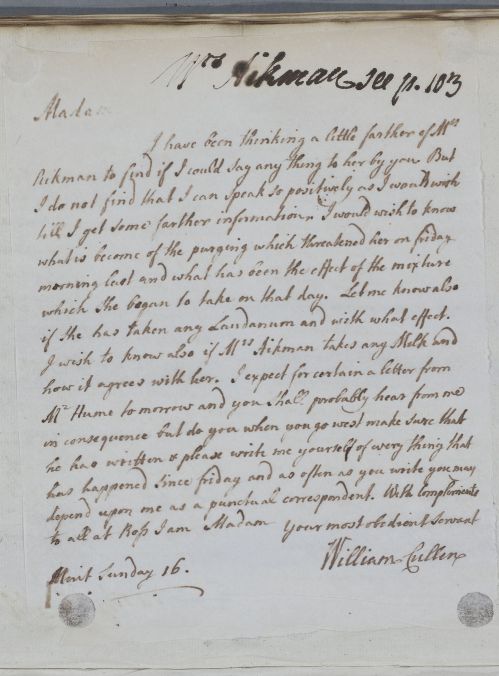 Mrs Aikman see p. 103
Madam
I have been thinking a little farther of Mrs
Aikman to find if I could say any thing to her by you But
I do not find that I can speak so positively as I would wish
till I get some farther information. I would wish to know
what is become of the purging which threatened her on friday
morning last and what has been the effect of the mixture
which She began to take on that day. Let me know also
if She has taken any Laudanum and with what effect.
I wish to know also if Mrs Aikman takes any Melk and
how it agrees with her. I expect for certain a letter from
Mr Hume to morrow and you Shall probably hear from me
in consequence but do you when you go west make sure that
he has written & please write me yourself of every thing that
has happened Since friday and as often as you write you may
depend upon me as a punctual correspondent. With Compliments
to all at Ross I am Madam your most obedient Servant
William Cullen
Mint Sunday 16.